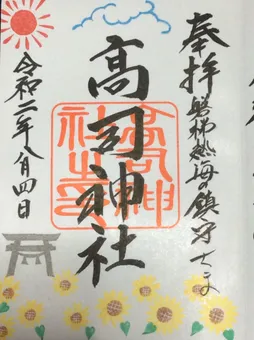 奉拝 磐梯熱海の鎮守さま
高司神社
高司神社之印
令和二年八月四日